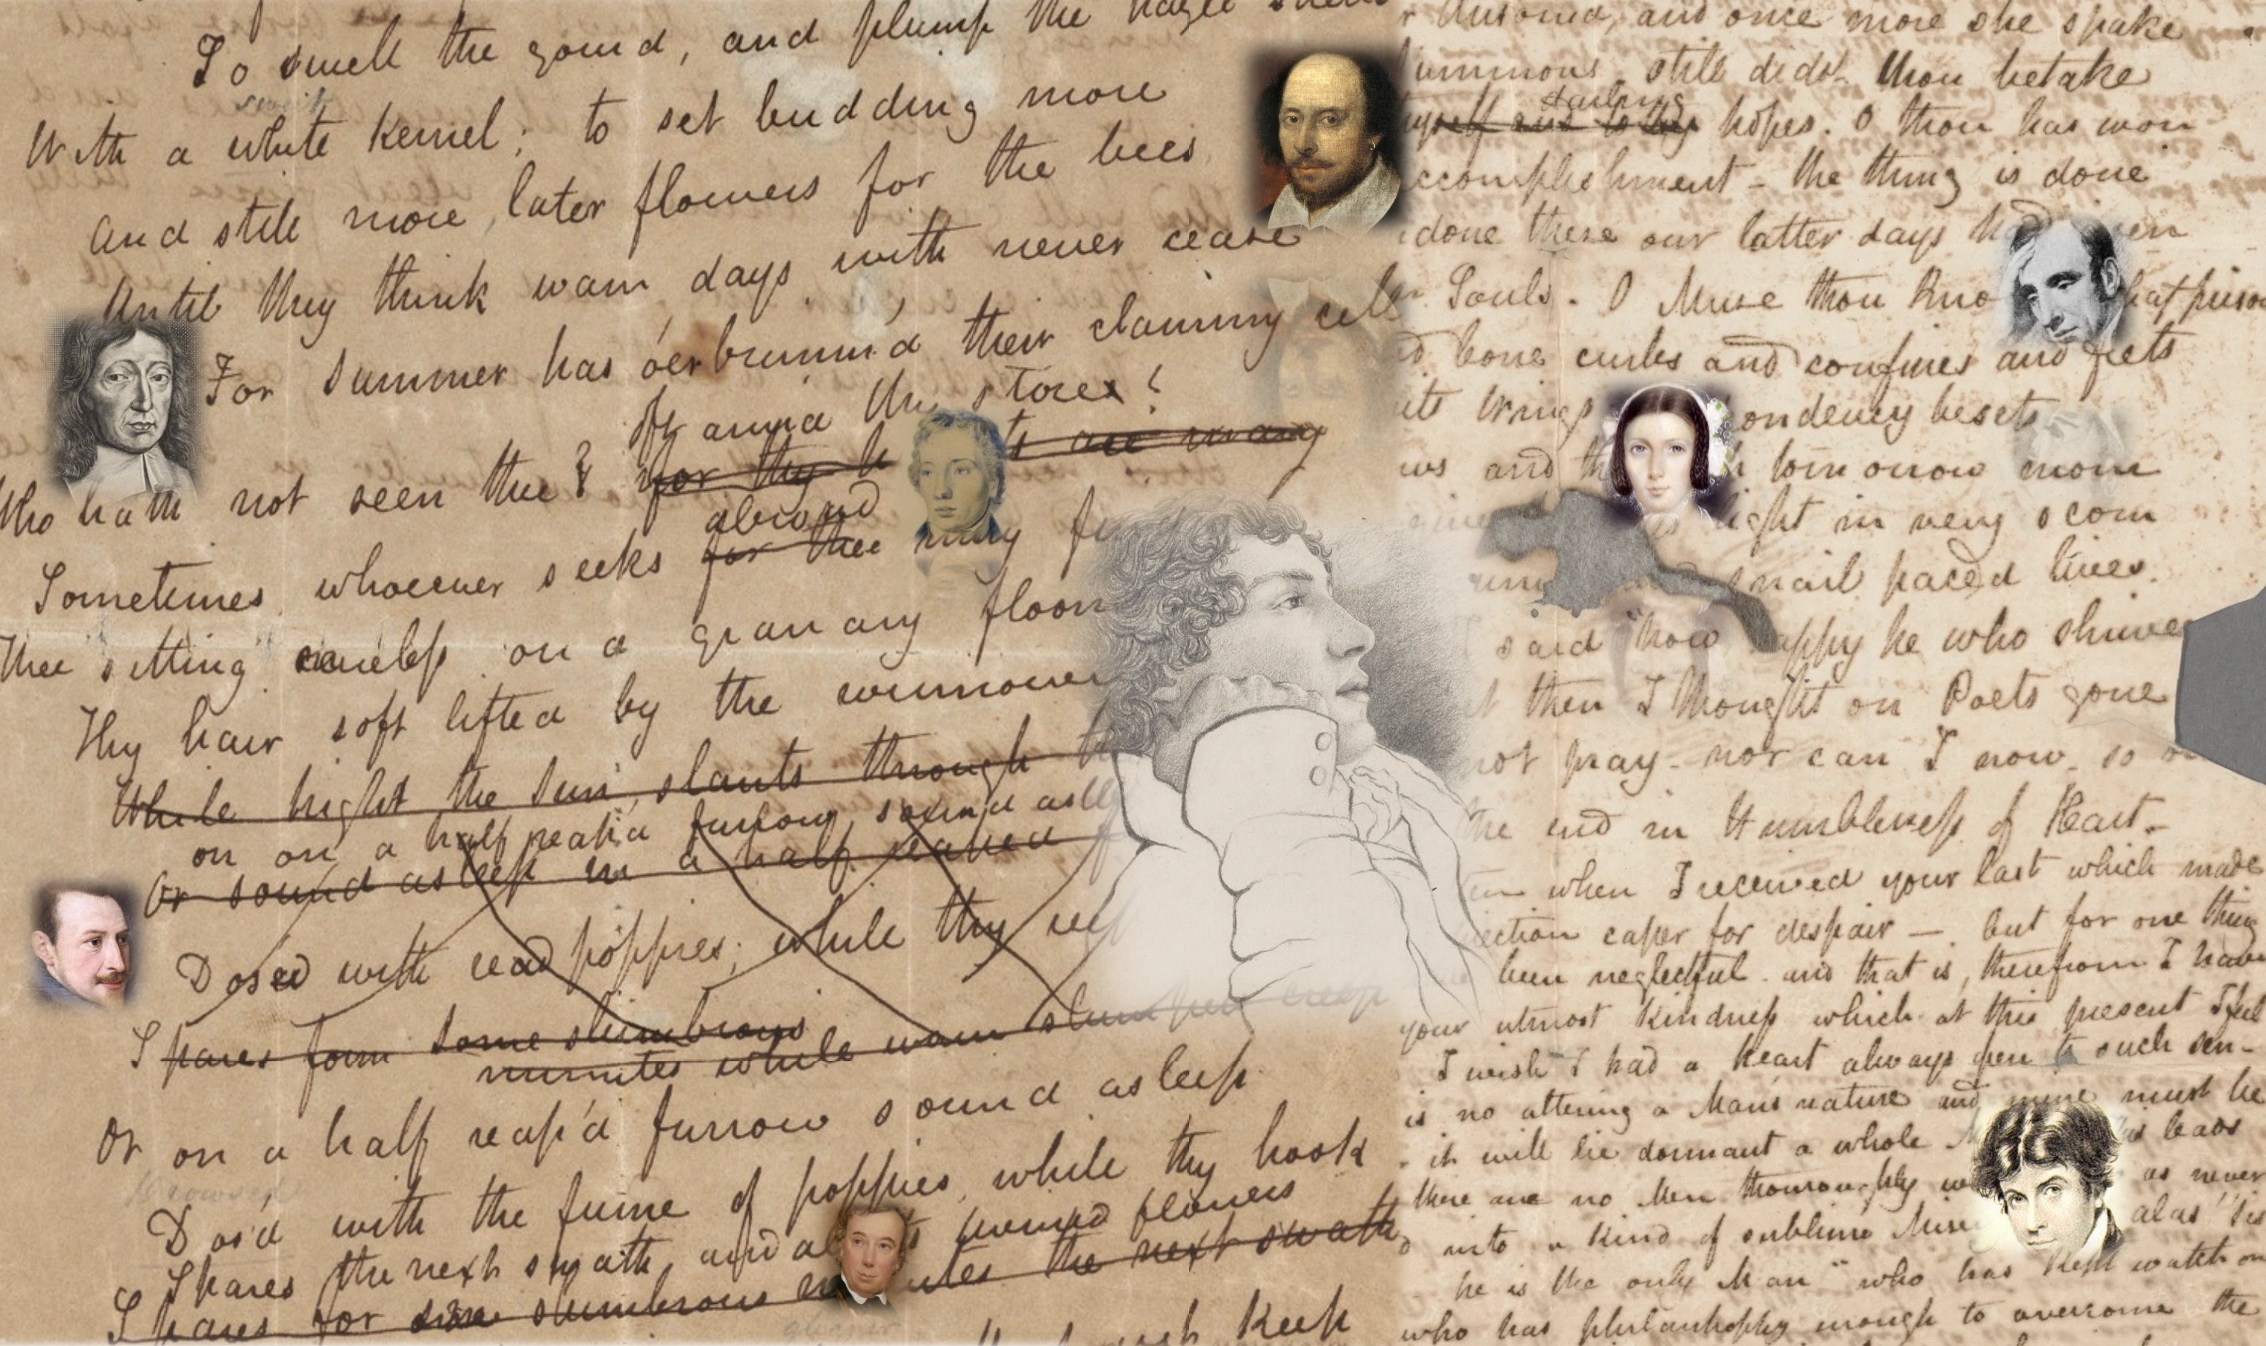 To swell the gourd, and plump the hazle shells
sweet
With a white kernel; to set budding more
And still more later flowers for the bees
Until they think warm days with never cease
For Summer has o'erbrimm'd their clammy cells
oft amid thy stores?
Who hath not seen thee? for thy are many
abroad
Sometimes whoever seeks for thee may
Thee sitting careless on a granary floor
Thy hair soft lifted by the
While bright the Sun slants through
on on a half reap'd furrow sound asl
Or sound asleep in a half reaped
Dosed with read poppies; while thy
Spares form some slumbrous
minutes while warm
Or on a half reap'd furrow sound asleep
Dos'd with the fume of poppies, while thy hook
Spares the next swath and flowers
Spares for some slumbrous the next swath
keep
and once more she spake
still didst thou betake
darling
and to thy hopes. O thou has won
ccomplishment - the thing is done
done these our latter days
Souls. O Muse thou
bone curbs and confines and frets
its wings ondency besets
and morrow morn
ight in very scorn
snail paced lives.
said "how appy he who shrives
then I thought on Poets gone
not pray - nor can I now - so
the end in Humbleness of Heart.
when I received your last which made
ection caper for despair — but for one thing
been neglectful - and that is, therefrom I have
your utmost kindness which at this present I feel
I wish I had a heart always open to such sen-
is no altering a Man's nature and mine must be
it will lie dormant a whole
there are no Men thouroughly as never
into a kind of sublime alas 'tis
he is the only Man "who has kept watch on
who has philantrophy enough to overcome the